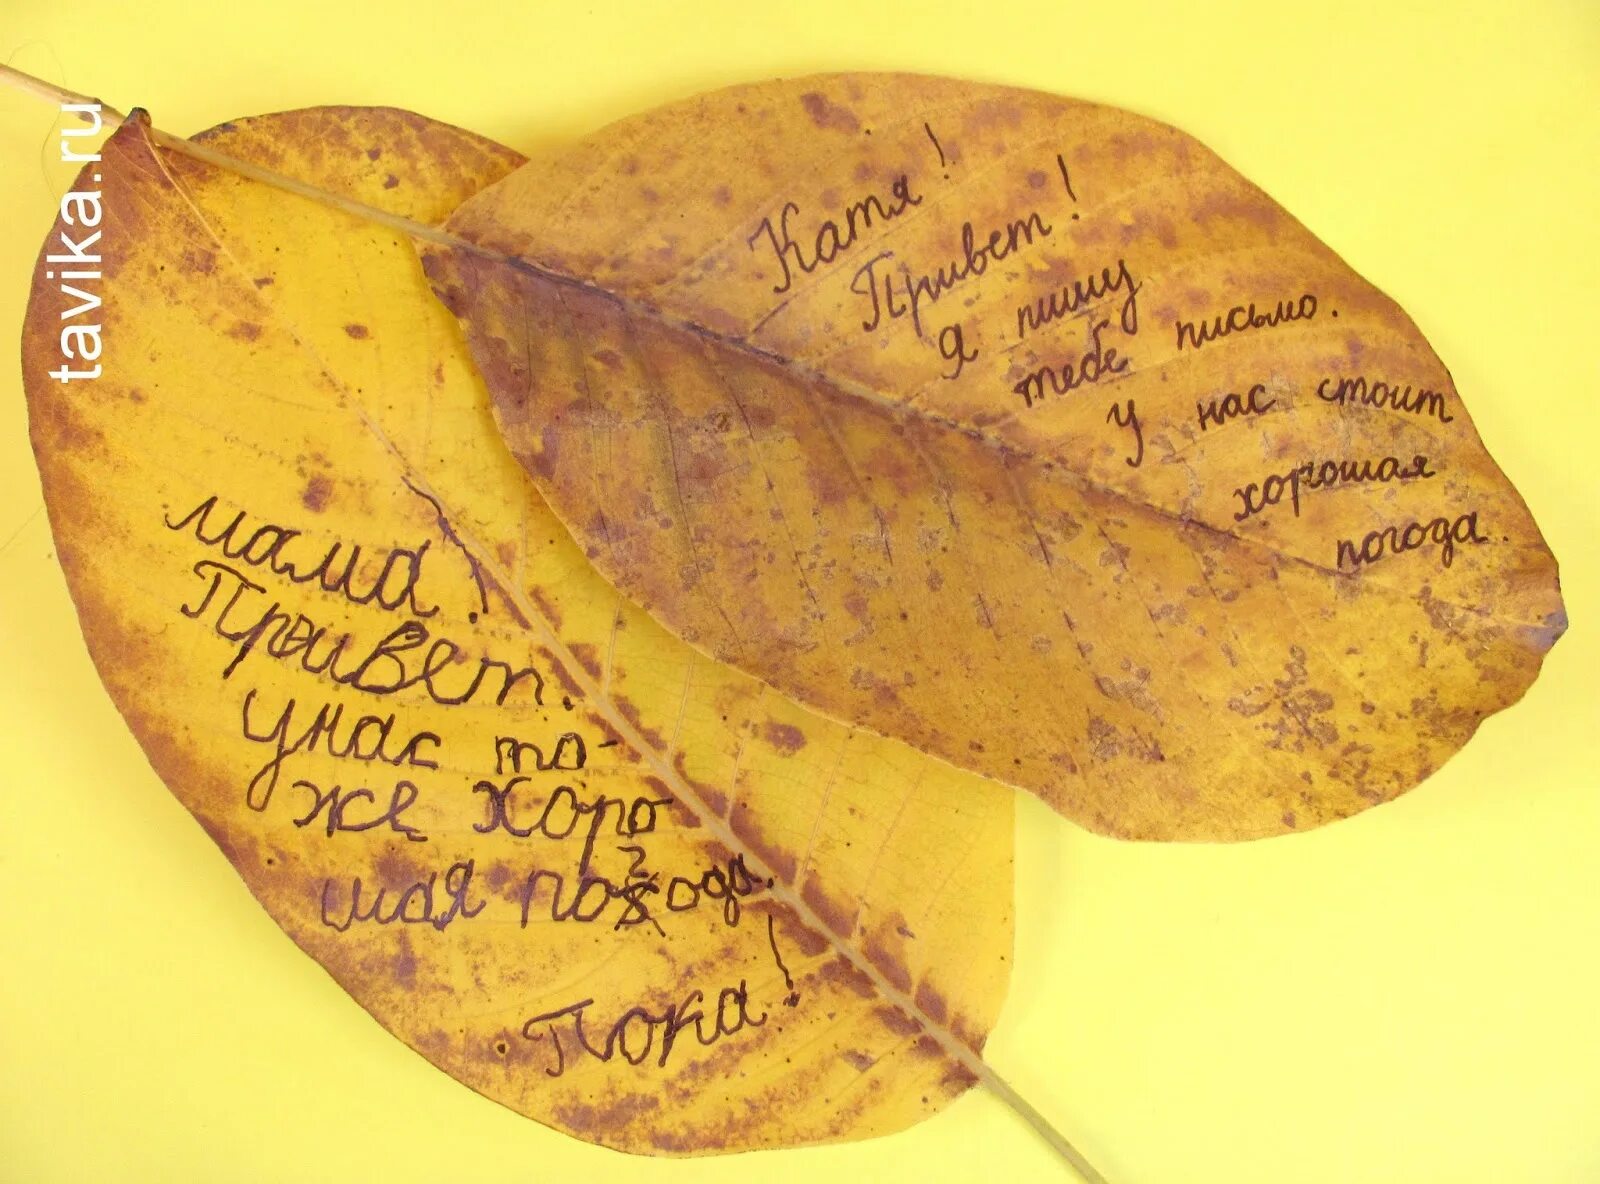 tavika.ru
Катя!
Привет!
Я пишу
тебе письмо.
У нас стоит
хорошая
погода.
мама!
Привет.
унас то-
же хоро
шая погода.
Пока!